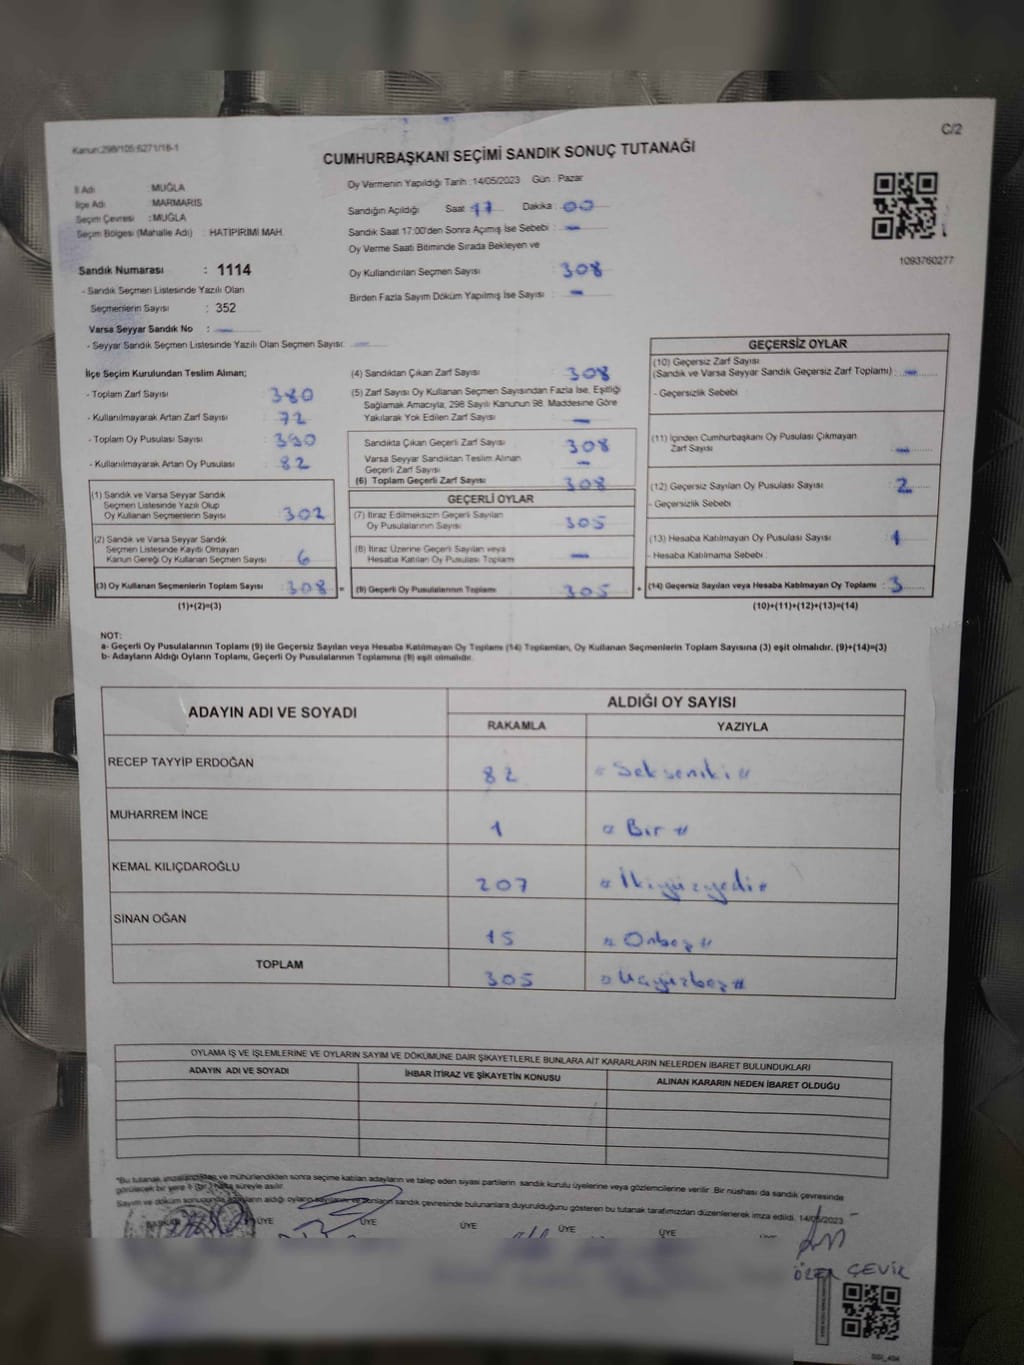 Kanun:298/105;6271/18-1
C/2
CUMHURBAŞKANI SEÇİMİ SANDIK SONUÇ TUTANAĞI
İl Adı : MUĞLA
İlçe Adı : MARMARİS
Seçim Çevresi : MUĞLA
Seçim Bölgesi (Mahalle Adı) : HATIPIRIMI MAH.
Sandık Numarası : 1114
- Sandık Seçmen Listesinde Yazılı Olan
Seçmenlerin Sayısı : 352
Varsa Seyyar Sandık No : -
- Seyyar Sandık Seçmen Listesinde Yazılı Olan Seçmen Sayısı: -
Oy Vermenin Yapıldığı Tarih : 14/05/2023 Gün : Pazar
Sandığın Açıldığı Saat 17 Dakika : 00
Sandık Saat 17:00'den Sonra Açımış İse Sebebi : -
Oy Verme Saati Bitiminde Sırada Bekleyen ve
Oy Kullandırılan Seçmen Sayısı 308
Birden Fazla Sayım Döküm Yapılmış İse Sayısı : -
1093760277
İlçe Seçim Kurulundan Teslim Alınan;
- Toplam Zarf Sayısı 380
- Kullanılmayarak Artan Zarf Sayısı : 72
- Toplam Oy Pusulası Sayısı : 390
- Kullanılmayarak Artan Oy Pusulası : 82
(1) Sandık ve Varsa Seyyar Sandık
Seçmen Listesinde Yazılı Olup
Oy Kullanan Seçmenlerin Sayısı : 302
(2) Sandık ve Varsa Seyyar Sandık
Seçmen Listesinde Kayıtlı Olmayan
Kanun Gereği Oy Kullanan Seçmen Sayısı : 6
(3) Oy Kullanan Seçmenlerin Toplam Sayısı : 308 =
(1)+(2)=(3)
(4) Sandıktan Çıkan Zarf Sayısı : 308
(5) Zarf Sayısı Oy Kullanan Seçmen Sayısından Fazla İse, Eşitliği
Sağlamak Amacıyla, 298 Sayılı Kanunun 98. Maddesine Göre
Yakılarak Yok Edilen Zarf Sayısı : -
Sandıkta Çıkan Geçerli Zarf Sayısı : 308
Varsa Seyyar Sandıktan Teslim Alınan
Geçerli Zarf Sayısı : -
(6) Toplam Geçerli Zarf Sayısı : 308
GEÇERLİ OYLAR
(7) İtiraz Edilmeksizin Geçerli Sayılan
Oy Pusulalarının Sayısı : 305
(8) İtiraz Üzerine Geçerli Sayılan veya
Hesaba Katılan Oy Pusulaları Toplamı : -
(9) Geçerli Oy Pusulalarının Toplamı : 305 +
GEÇERSİZ OYLAR
(10) Geçersiz Zarf Sayısı
(Sandık ve Varsa Seyyar Sandık Geçersiz Zarf Toplamı) : -
- Geçersizlik Sebebi :
(11) İçinden Cumhurbaşkanı Oy Pusulası Çıkmayan
Zarf Sayısı : -
(12) Geçersiz Sayılan Oy Pusulası Sayısı : 2
- Geçersizlik Sebebi :
(13) Hesaba Katılmayan Oy Pusulası Sayısı : 1
- Hesaba Katılmama Sebebi :
(14) Geçersiz Sayılan veya Hesaba Katılmayan Oy Toplamı : 3
(10)+(11)+(12)+(13)=(14)
NOT:
a- Geçerli Oy Pusulalarının Toplamı (9) ile Geçersiz Sayılan veya Hesaba Katılmayan Oy Toplamı (14) Toplamları, Oy Kullanan Seçmenlerin Toplam Sayısına (3) eşit olmalıdır. (9)+(14)=(3)
b- Adayların Aldığı Oyların Toplamı, Geçerli Oy Pusulalarının Toplamına (9) eşit olmalıdır.
ADAYIN ADI VE SOYADI
ALDIĞI OY SAYISI
RAKAMLA YAZIYLA
RECEP TAYYİP ERDOĞAN 82 "Sekseniki"
MUHARREM İNCE 1 "Bir"
KEMAL KILIÇDAROĞLU 207 "İkiyüzyedi"
SİNAN OĞAN 15 "Onbeş"
TOPLAM 305
OYLAMA İŞ VE İŞLEMLERİNE VE OYLARIN SAYIM VE DÖKÜMÜNE DAİR ŞİKAYETLERLE BUNLARA AİT KARARLARIN NELERDEN İBARET BULUNDUKLARI
ADAYIN ADI VE SOYADI İHBAR İTİRAZ VE ŞİKAYETİN KONUSU ALINAN KARARIN NEDEN İBARET OLDUĞU
*Bu tutanak imzalandıktan ve mühürlendikten sonra seçime katılan adayların ve talep eden siyasi partilerin sandık kurulu üyelerine veya gözlemcilerine verilir. Bir nüshası da sandık çevresinde
görülecek bir yere 8 (bir) hafta süreyle asılır.
Sayım ve döküm sonucunda adayların aldığı oyların sandık çevresinde bulunanlara duyurulduğunu gösteren bu tutanak tarafımızdan düzenlenerek imza edildi. 14/05/2023
BAŞKAN ÜYE ÜYE ÜYE ÜYE ÜYE
ÖZER ÇEVİK